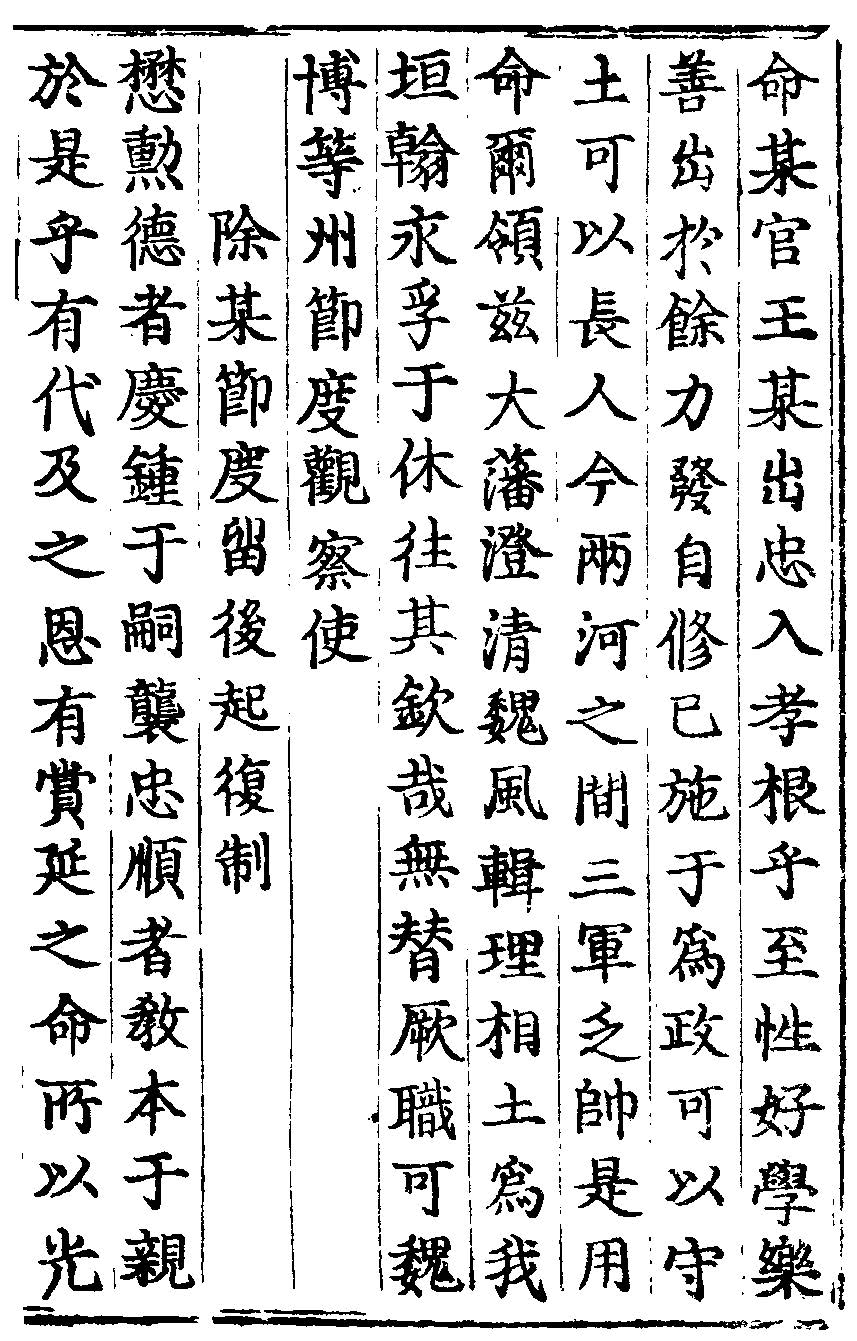 命某官王某出忠入孝根乎至性好學樂
善出於餘力發自修已施于爲政可以守
土可以長人今兩河之間三軍乏帥是用
命爾領兹大藩澄清魏風輯理相土爲我
垣翰永孚于休往其欽哉無替厥職可魏
博等州節度觀察使
除某節度留後起復制
懋勲德者慶鍾于嗣襲忠順者教本于親
於是乎有代及之恩有賞延之命所以光